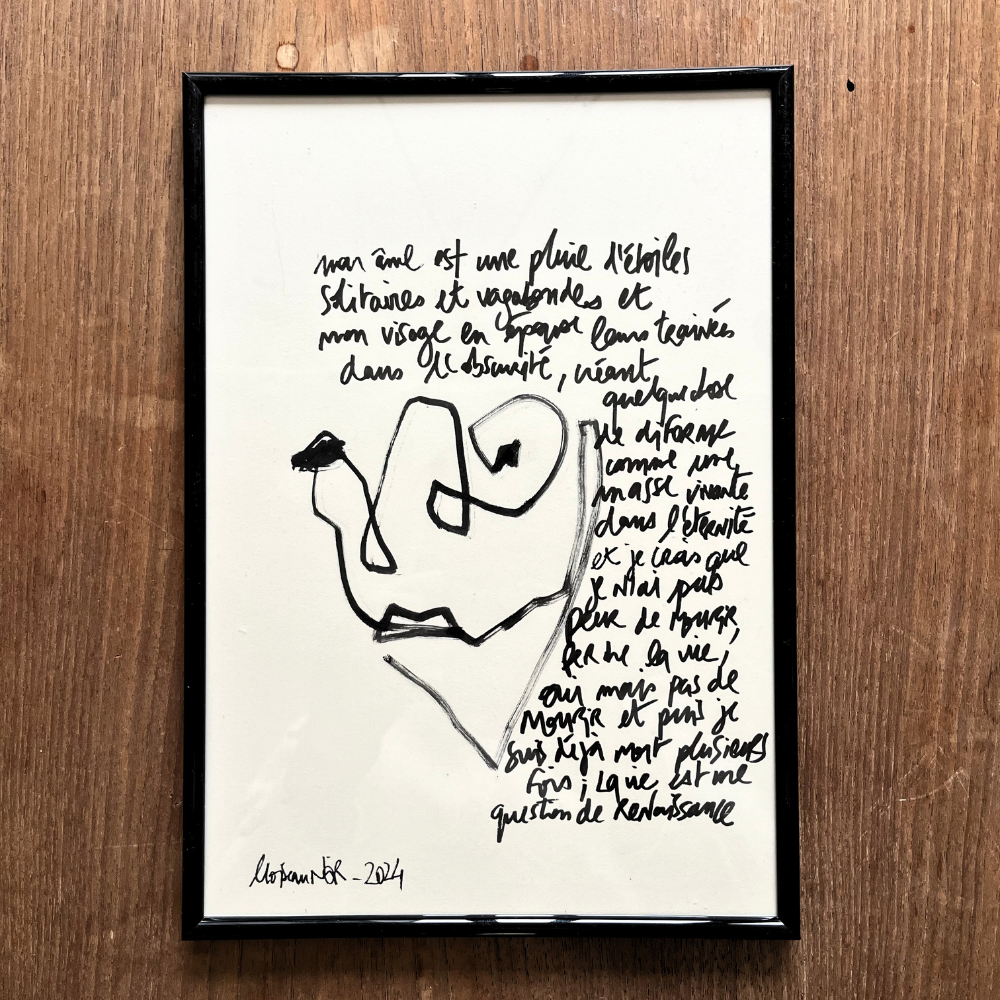 mon âme est une pluie d'étoiles
solitaires et vagabondes et
mon visage en épouse leurs trainées
dans l'obscurité, créant
quelque chose
de difforme
comme une
masse vivante
dans l'éternité
et je crois que
je n'ai pas
peur de mourir,
perdre la vie,
oui mais pas de
mourir et puis je
suis déjà mort plusieurs
fois ; la vie est une
question de Renaissance
2024